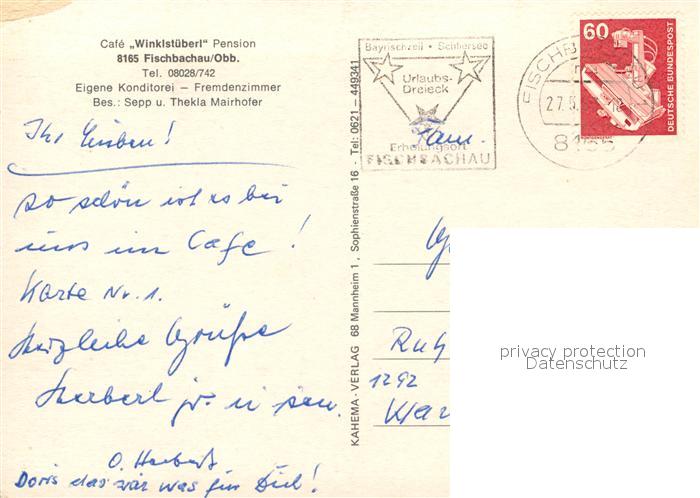 Café „Winklstüberl" Pension
8165 Fischbachau/Obb.
Tel. 08028/742
Eigene Konditorei – Fremdenzimmer
Bes.: Sepp u. Thekla Mairhofer
Ihr Lieben!
so schön ist es bei
uns im Cafe!
Karte Nr. 1.
Herzliche Grüße
Herbert jr. u sen.
O. Herbert
Doris das wär was für Dich!
KAHEMA-VERLAG 68 Mannheim 1, Sophienstraße 16 - Tel: 0621 – 449341
Bayrischzell • Schliersee
Urlaubs-
Dreieck
Erholungsort
FISCHBACHAU
Fam.
8165
60
DEUTSCHE BUNDESPOST
1292
privacy protection
Datenschutz